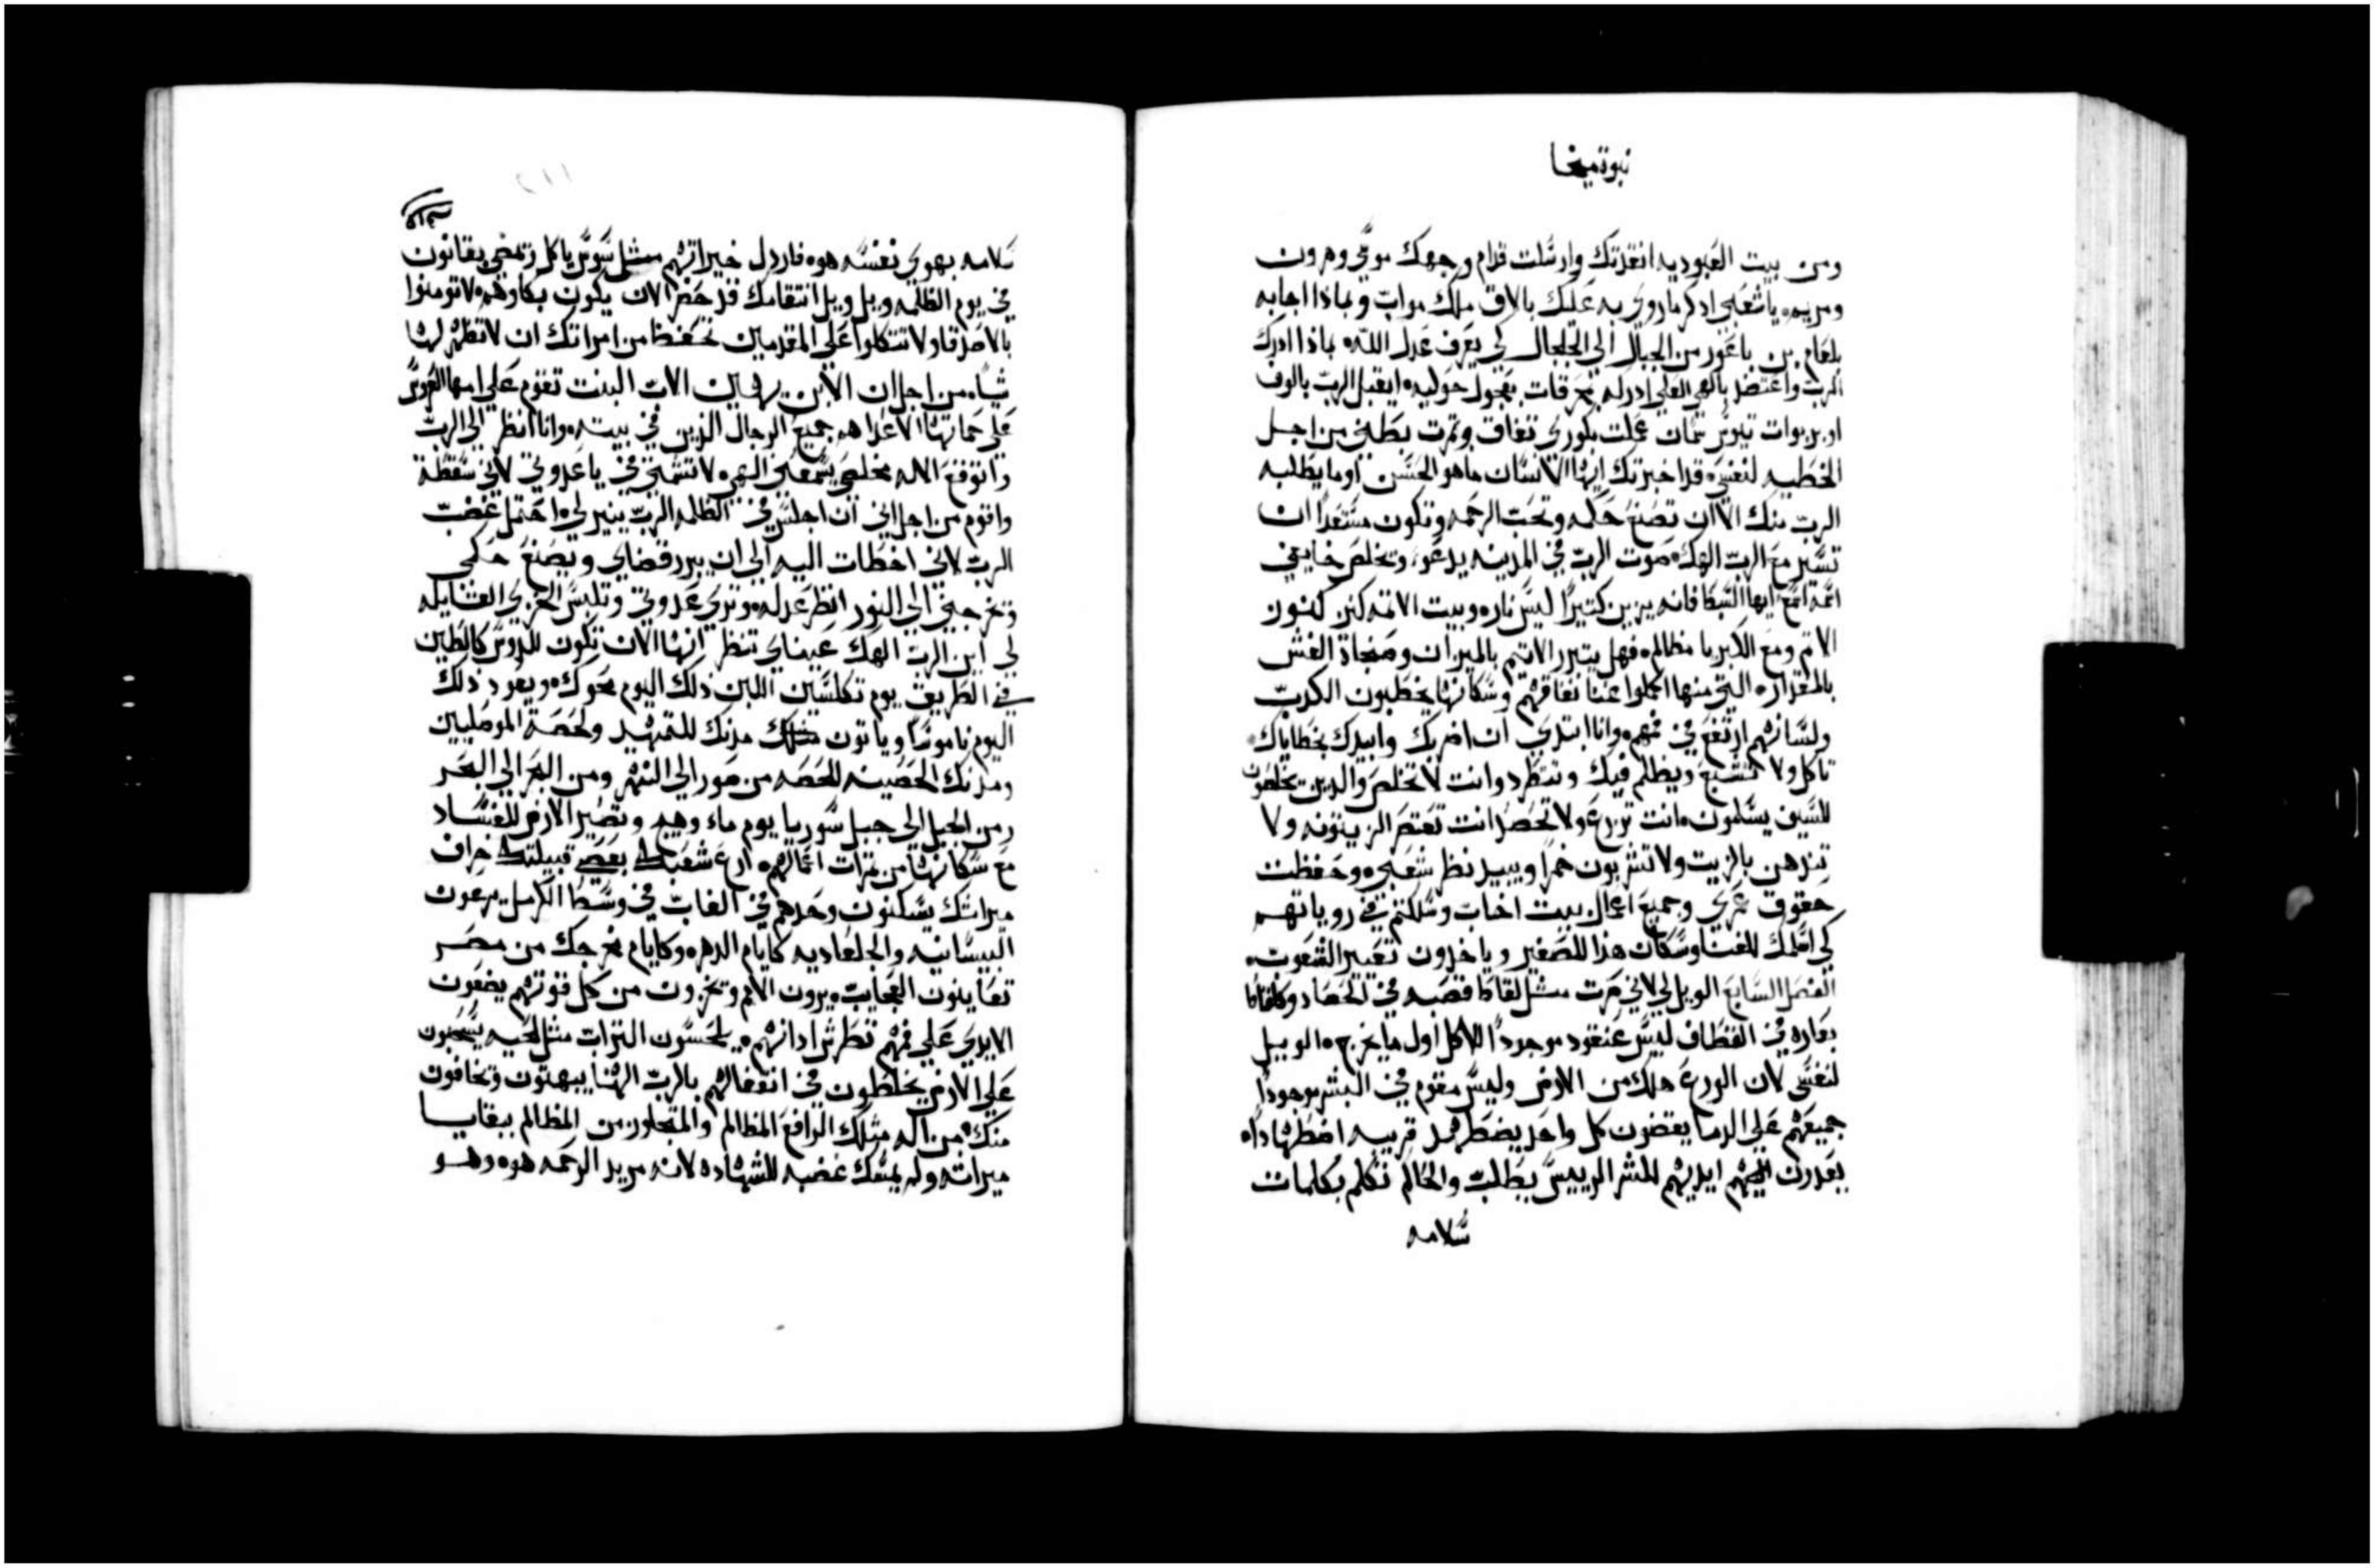 نبوة ميخا
ومن بيت العبوديه انقذتك وارسلت قدام وجهك موسي وهرون
ومريم ياشعبي ادكر ماروي به عليك بالاق ملك مواب وبماذا اجابه
بلعام بن باعور من الجبال الي الجلجال لكي يعرف عدل الله بماذا ادرك
الرب واعتضد بالهي العلي ادركه بمحرقات بعجول حوليه ايقبل الرب بالوف
او بربوات تيوس سمان عملت بكوري نفاق وثمرت بطني من اجل
الخطيه لنفسي قد اخبرتك ايها الانسان ماهو الحسن اوما يطلبه
الرب منك الا ان تصنع حكمه وتحب الرحمه وتكون مستعدا ان
تسير مع الرب الهك صوت الرب في المدينه يدعوا وتخلص خايفي
اسمه اسمع ايها السبط فانه يزين كثيرا ليس ناره وبيت الاثمه كنز كنوز
الاثم ومع الكبريا مظالم فهل يتبرر الاثيم بالميزان وصنجاة الغش
بالمقدار التي منها اكملوا غنا نفاقهم وسكانها يخطبون الكدب
ولسانهم ارتفع في فمهم وانا ابتدي ان اضربك وابيدك بخطاياك
تاكل ولا تشبع ويظلم فيك وتطرد وانت لا تخلص والدين يخلصون
للسيف يسلمون انت تزرع ولا تحصد انت تعتصر الزيتونه ولا
تدهن بالزيت ولا تشربون خمرا ويبيد نظر شعبي وحفظت
حقوق عمري وجميع اعمال بيت اخاب وسلكتم في روياتهم
لكي اسلمك للفنا وسكان هذا للصفير وياخدون تعيير الشعوب
الفصل السابع الويل لي لاني صرت مثل لقاط قصبه في الحصاد وكلقاط
بعاره في القطاف ليس عنقود موجود الاكل اول مايخرج الويل
لنفسي لان الورع هلك من الارض وليس مقوم في البشر موجودا
جميعهم علي الدما يقضون كل واحد يضطهد قريبه اضطهادا
يعدون ايديهم للشر الرييس يطلب والحاكم تكلم بكلمات
سلامه
سلامه بهوي نفسه هوه فاردل خيراتهم مثل سوس ياكل وتمضي بقانون
في يوم الظلمه ويل ويل انتقامك قد حضر الان يكون بكاوهم لا تومنوا
بالاصدقا ولا تتكلوا علي المقدمين تحفظ من امراتك ان لا تظهر لها
شيا من اجل ان الابن يهين الاب البنت تقوم علي امها العروس
علي حماتها الاعدا هم جميع الرجال الذين في بيته وانا انظر الي الرب
واتوقع الاله مخلصي يسمعني الهي لا تشمتي في ياعدوتي لاني سقطة
واقوم من اجل اني ان اجلس في الظلمه الرب ينير لي احتمل غضب
الرب لاني اخطات اليه الي ان يبرر قضاي ويصنع حكمي
وتخرجني الي النور انظر عدله وتري عدوتي وتلبس الخزي القايله
لي اين الرب الهك عيناي تنظر انها الان تكون للدوس كالطين
في الطريق يوم تكلسين اللبن ذلك اليوم محوك ويعود ذلك
اليوم ناموسا وياتون مدنك للتمهيد ولحصة الموصليين
ومدنك الحصينه للحصه من صور الي النهر ومن البحر الي البحر
ومن الجبل الي جبل سوريا يوم ماء وهيج وتصير الارض للفساد
مع سكانها من ثمرات اعمالهم ارع شعبك بعصي قبيلتك خراف
ميراثك يسكنون وحدهم في الغاب في وسط الكرمل يرعون
البيسانيه والجلعاديه كايام الدهر وكايام مخرجك من مصر
تعاينون العجايب يرون الامم وتخزون من كل قوتهم يضعون
الايدي علي فمهم تطرش ادانهم يلحسون التراب مثل الحيه يسحبون
علي الارض يختلطون في انغفالهم بالرب الهنا يبهتون وتخافون
منك من اله مثلك الرافع المظالم والمتجاوز من المظالم ببقايا
ميراثه ولم يمسك غضبه للشهاده لانه مريد الرحمه هوه وهو